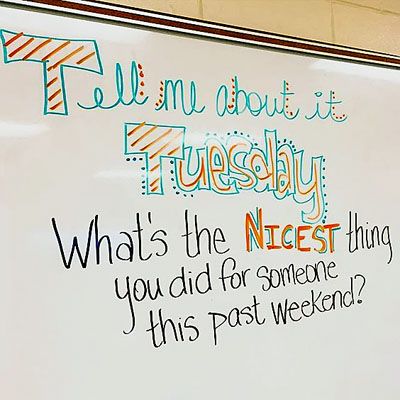 Tell me about it
Tuesday
What's the NICEST thing
you did for someone
this past weekend?